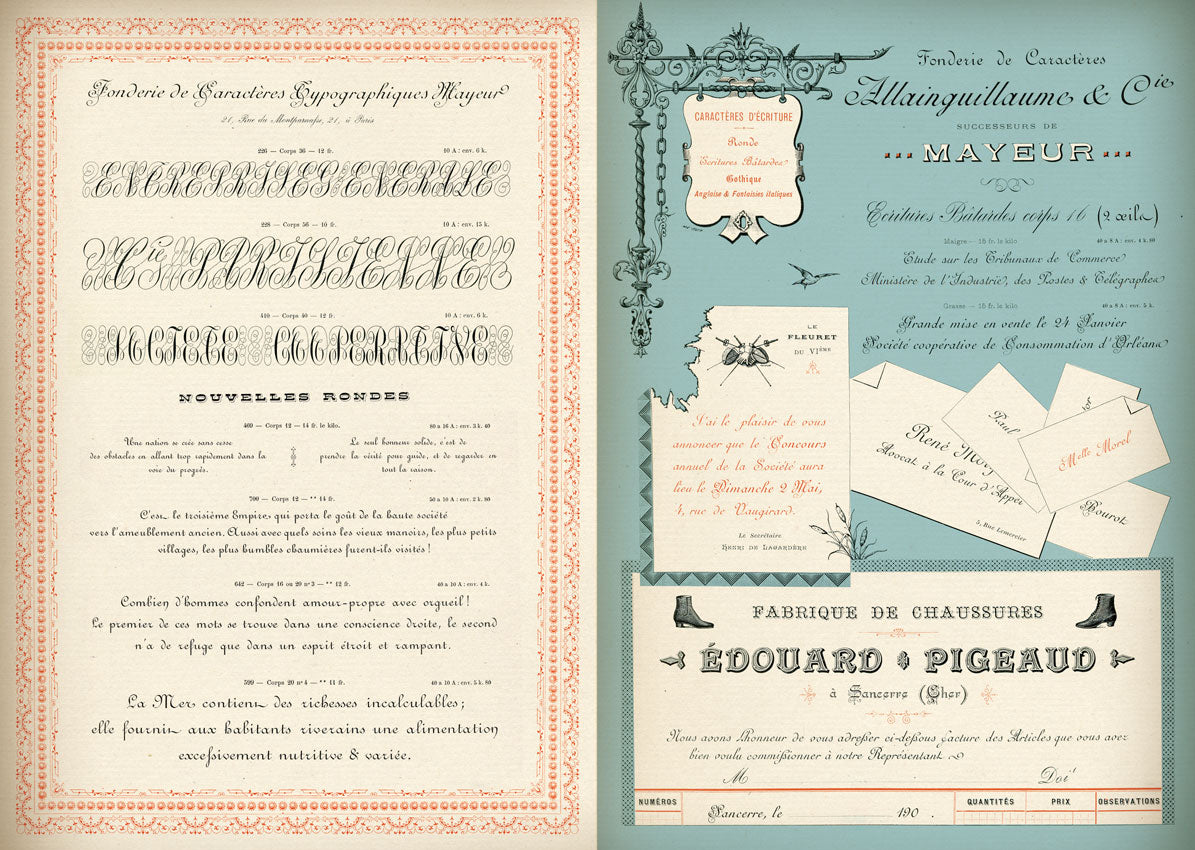 Fonderie de Caractères Typographiques Mayeur
21, Rue du Montparnasse, 21, à Paris
226 — Corps 36 — 12 fr. 10 A : env. 6 k.
ENTREPRISES GENERALE
228 — Corps 56 — 10 fr. 10 A : env. 15 k.
Cie PARISIENNE
410 — Corps 40 — 12 fr. 10 A : env. 6 k.
SOCIETE COOPERATIVE
NOUVELLES RONDES
469 — Corps 12 — 14 fr. le kilo. 80 a 16 A : env. 3 k. 40
Une nation se crée sans cesse
des obstacles en allant trop rapidement dans la
voie du progrès.
Le seul honneur solide, c'est de
prendre la vérité pour guide, et de regarder en
tout la raison.
700 — Corps 12 — ** 14 fr. 50 a 10 A : env. 2 k. 80
C'est le troisième Empire qui porta le goût de la haute société
vers l'ameublement ancien. Aussi avec quels soins les vieux manoirs, les plus petits
villages, les plus humbles chaumières furent-ils visités !
642 — Corps 16 ou 20 nº 3 — ** 12 fr. 40 a 10 A : env. 4 k.
Combien d'hommes confondent amour-propre avec orgueil !
Le premier de ces mots se trouve dans une conscience droite, le second
n'a de refuge que dans un esprit étroit et rampant.
599 — Corps 20 nº 4 — ** 11 fr. 40 a 10 A : env. 5 k. 80
La Mer contient des richesses incalculables ;
elle fournit aux habitants riverains une alimentation
excessivement nutritive & variée.
CARACTÈRES D'ÉCRITURE
Ronde
Ecritures Bâtardes
Gothique
Anglaise & Fantaisies italiques
Fonderie de Caractères
Allainguillaume & Cie
SUCCESSEURS DE
MAYEUR
Ecritures Bâtardes corps 16 (2 œils)
Maigre — 15 fr. le kilo 40 a 8 A : env. 4 k. 80
Etude sur les Tribunaux de Commerce
Ministère de l'Industrie, des Postes & Télégraphes
Grasse — 15 fr. le kilo 40 a 8 A : env. 5 k.
Grande mise en vente le 24 Janvier
Société coopérative de Consommation d'Orléans
LE
FLEURET
DU VIÈME
J'ai le plaisir de vous
annoncer que le Concours
annuel de la Société aura
lieu le Dimanche 2 Mai,
4, rue de Vaugirard.
Le Secrétaire
HENRI DE LAGARDÈRE
René
Avocat à la Cour d'Appel
5, Rue Lemercier
Paul
Melle Morel
Bourot
FABRIQUE DE CHAUSSURES
ÉDOUARD PIGEAUD
à Sancerre (Cher)
Nous avons l'honneur de vous adresser ci-dessous facture des Articles que vous avez
bien voulu commissionner à notre Représentant
M Doit
NUMÉROS Sancerre, le 190 . QUANTITÉS PRIX OBSERVATIONS